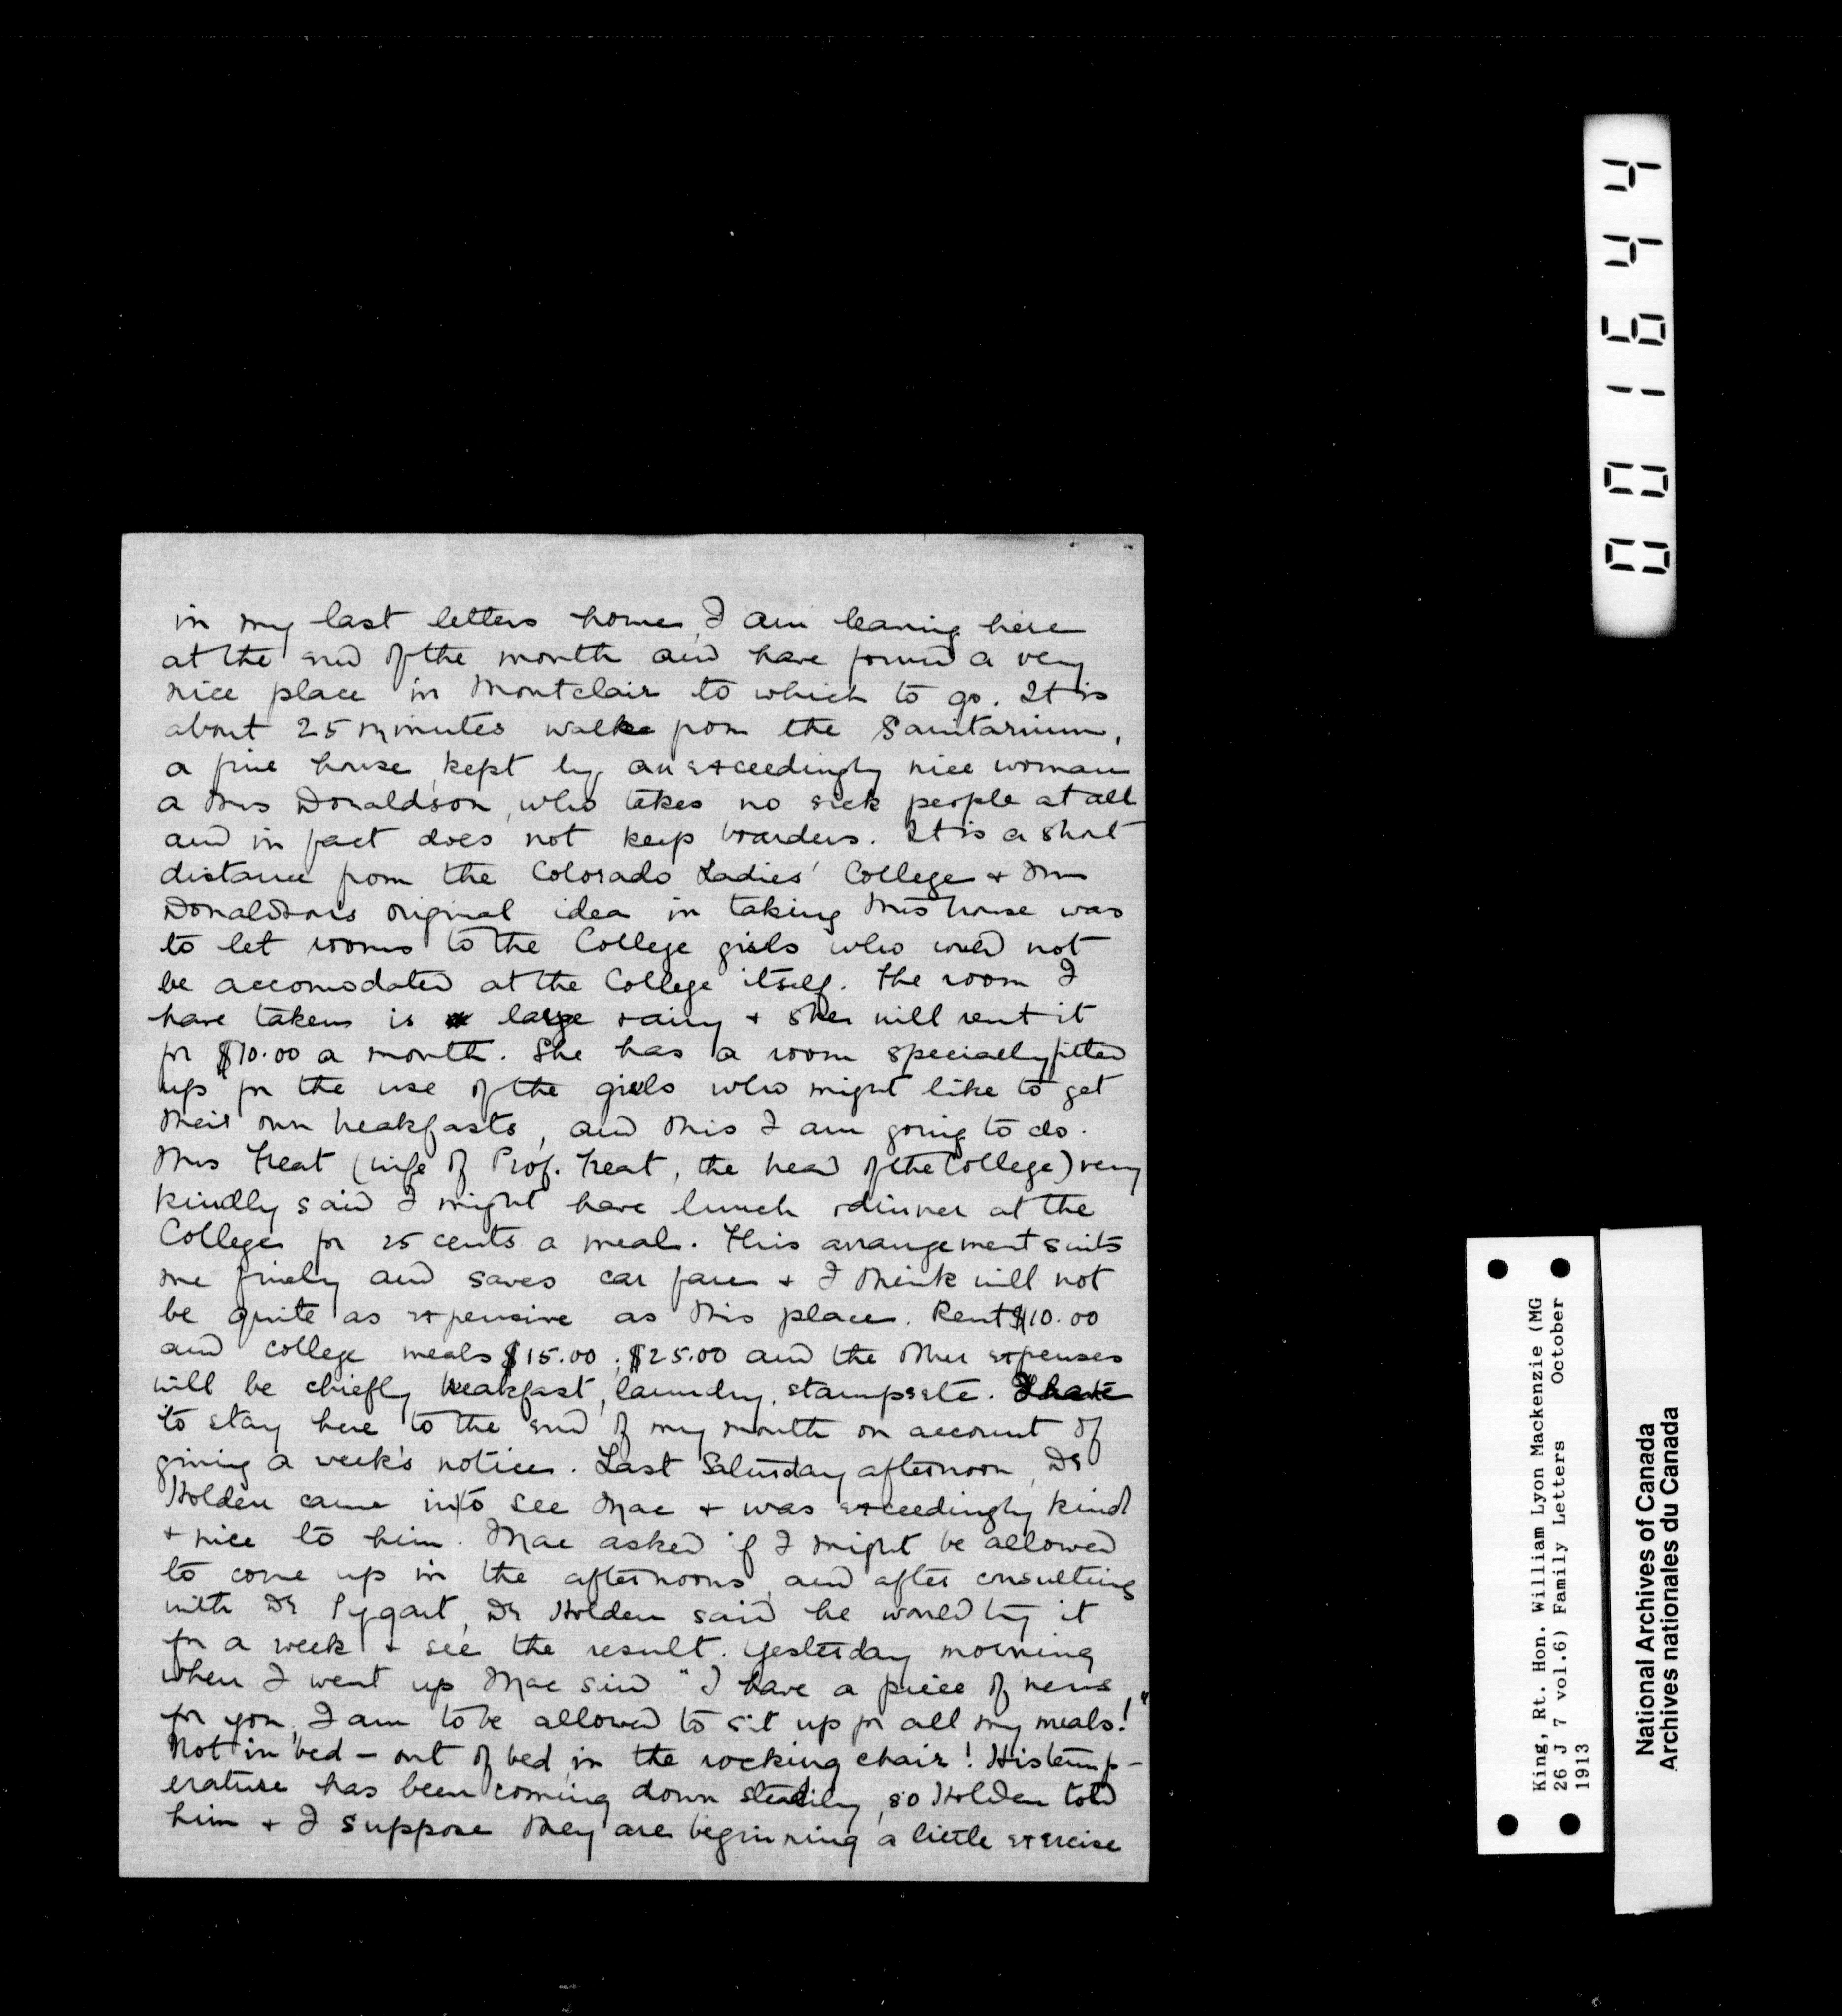 in my last letters home, I am leaving here
at the end of the month and have found a very
nice place in Montclair to which to go. It is
about 25 minutes walk from the Sanitarium,
a fine house, kept by an exceedingly nice woman
a Mrs Donaldson, who takes no sick people at all
and in fact does not keep boarders. It is a short
distance from the Colorado Ladies' College + Mrs
Donaldsons original idea in taking this house was
to let rooms to the College girls who could not
be accomodated at the College itself. The room I
have taken is large + airy + she will rent it
for $10.00 a month. She has a room specially fitted
up for the use of the girls who might like to get
their own breakfasts, and this I am going to do.
Mrs Treat (wife of Prof. Treat, the head of the College) very
kindly said I might have lunch + dinner at the
College for 25 cents a meal. This arrangement suits
me finely and saves car fare + I think will not
be quite as expensive as this place. Rent $10.00
and college meals $15.00; $25.00 and the other expenses
will be chiefly breakfast, laundry, stamps etc. I have
to stay here to the end of my month on account of
giving a week's notice. Last Saturday afternoon, Dr
Holden came in to see Mac + was exceedingly kind
+ nice to him. Mac asked if I might be allowed
to come up in the afternoons, and after consulting
with Dr Pygart, Dr Holden said he would try it
for a week + see the result. Yesterday morning
when I went up Mac said "I have a piece of news
for you, I am to be allowed to sit up for all my meals!"
Not in bed – out of bed, in the rocking chair! His temp-
erature has been coming down steadily, so Holden told
him + I suppose they are beginning a little exercise
001644
King, Rt. Hon. William Lyon Mackenzie (MG
26 J 7 vol.6) Family Letters October
1913
National Archives of Canada
Archives nationales du Canada